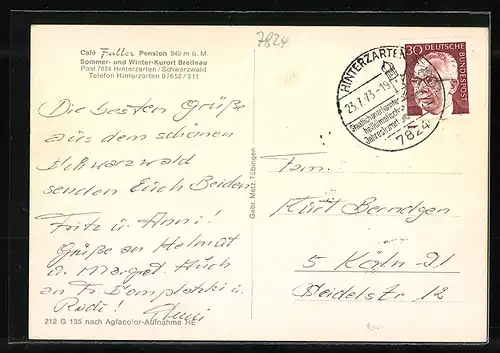 Café Faller Pension 940 m ü. M.
Sommer- und Winter-Kurort Breitnau
Post 7824 Hinterzarten / Schwarzwald
Telefon Hinterzarten 07652 / 311
7824
HINTERZARTEN
23.7.73-19
Jahreskurort
7824
30 DEUTSCHE
BUNDESPOST
Die besten Grüße
aus dem schönen
Schwarzwald
senden Euch Beiden
Fritz u. Anni!
Grüße an Helmut
u. Margot Auch
an Fr. u.
Rudi! Anni
Gebr. Metz, Tübingen
Fam.
Kurt Berndgen
5 Köln-21
Deidelstr 12
212 G 135 nach Agfacolor-Aufnahme HE